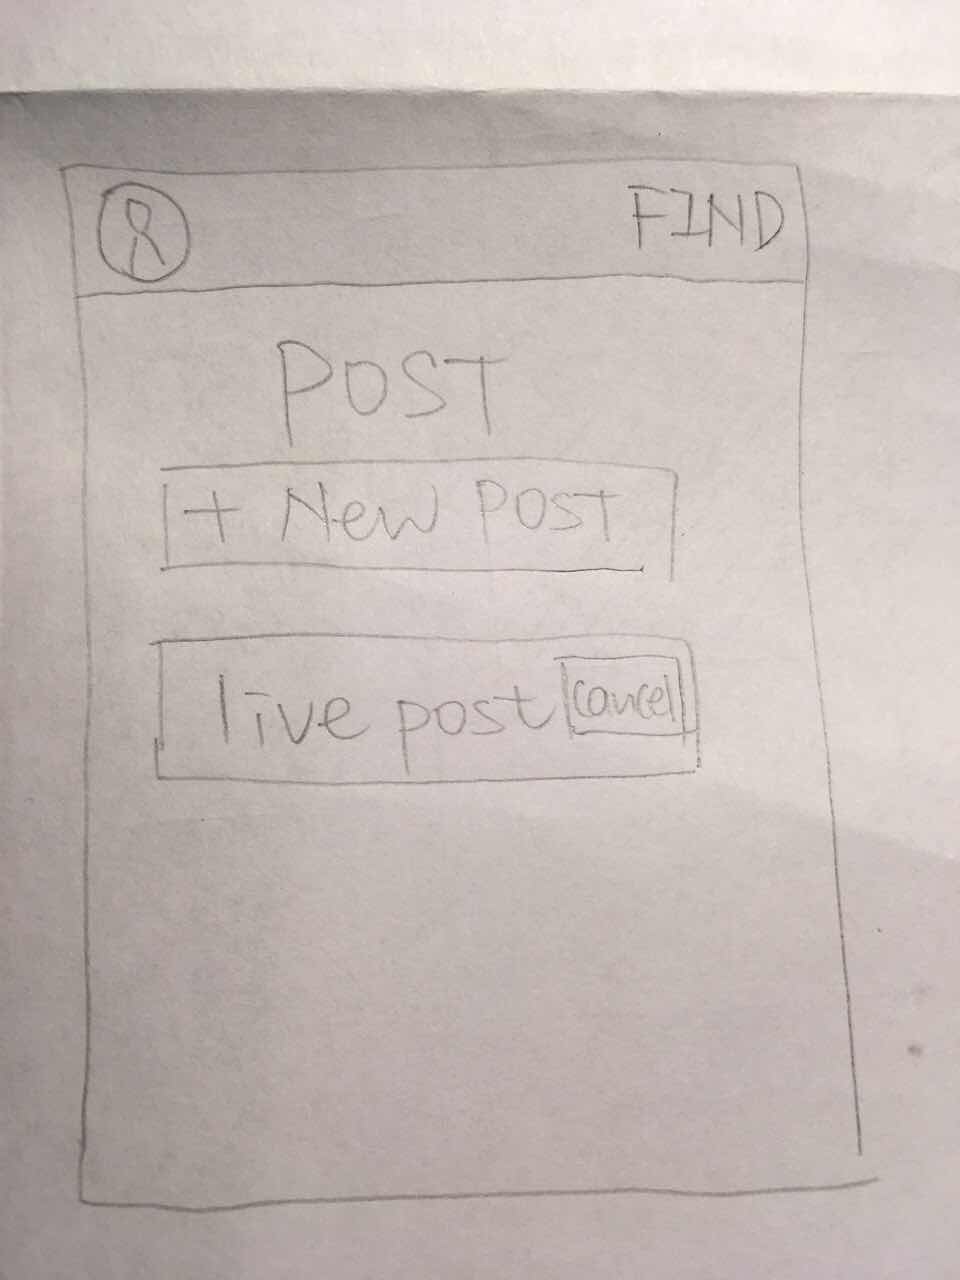 FIND
POST
+ New POST
live post cancel